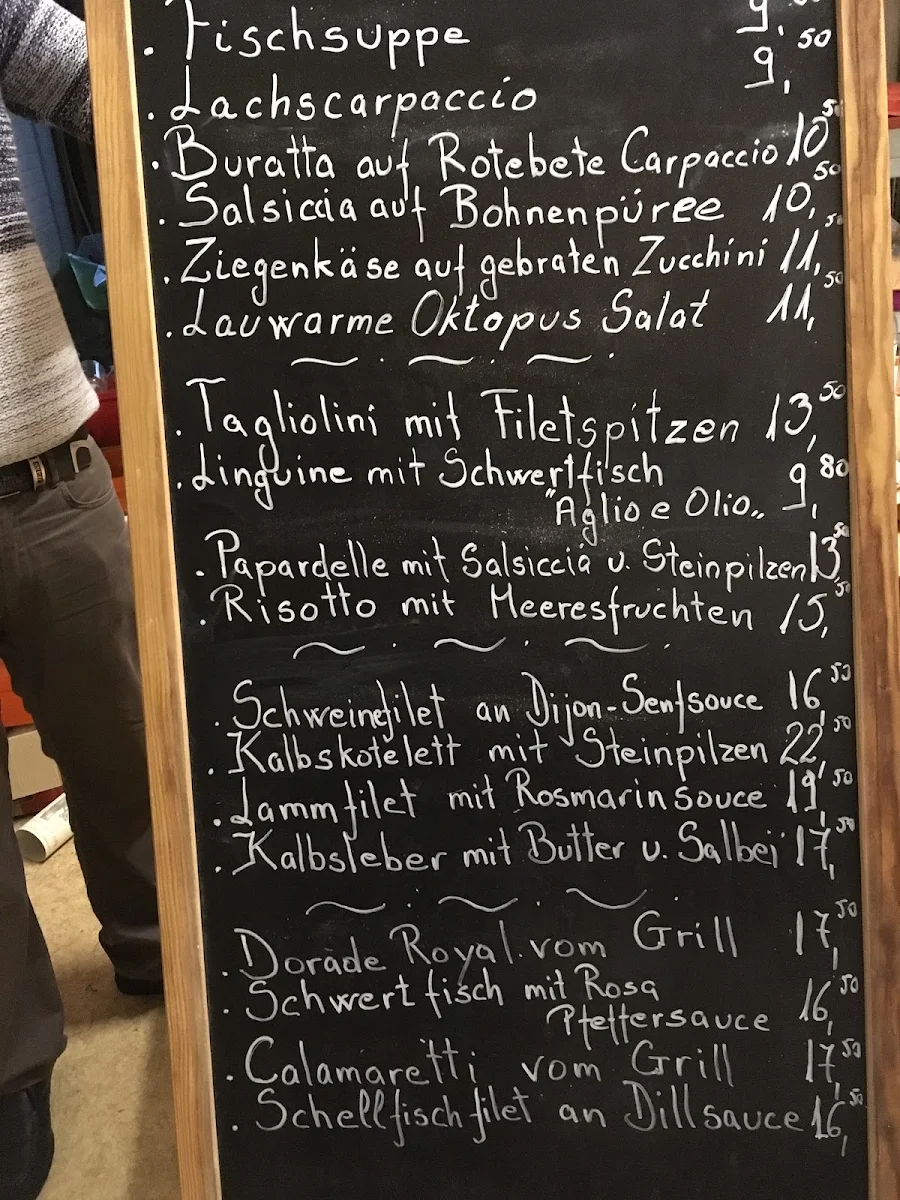 . Fischsuppe 9,
. Lachscarpaccio 9,50
. Buratta auf Rotebete Carpaccio 10,50
. Salsiccia auf Bohnenpüree 10,50
. Ziegenkäse auf gebraten Zucchini 11,50
. Lauwarme Oktopus Salat 11,50
. Tagliolini mit Filetspitzen 13,50
. Linguine mit Schwertfisch 9,80
"Aglio e Olio„
. Papardelle mit Salsiccia u. Steinpilzen 13,50
. Risotto mit Meeresfruchten 15,50
. Schweinefilet an Dijon-Senfsouce 16,50
. Kalbskotelett mit Steinpilzen 22,50
. Lammfilet mit Rosmarinsouce 19,50
. Kalbsleber mit Butter u. Salbei 17,50
. Dorade Royal vom Grill 17,50
. Schwertfisch mit Rosa
Pfeffersauce 16,50
. Calamaretti vom Grill 17,50
. Schellfischfilet an Dillsauce 16,50